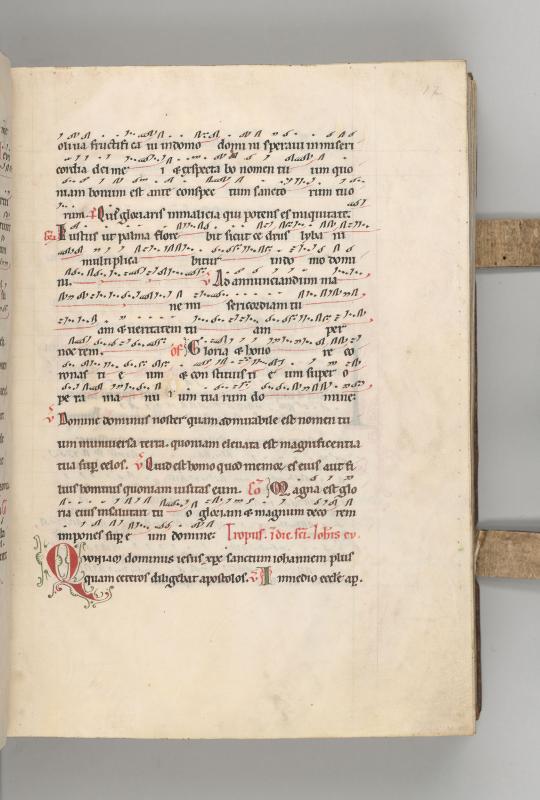 12
oliua fructifi ca in domo domini speraui in miseri
cordia dei me i & exspecta bo nomen tu um quo
niam bonum est ante conspe ctum sancto rum tuo
rum. Quid gloriaris in malicia qui potens es in iniquitate.
Iustus ut palma flore bit sicut ce drus lyba ni
multiplica bitur in do mo domi
ni. v Ad annunciandum ma
ne mi sericordiam tu
am & ueritatem tu am per
noctem. of Gloria & hono re co
ronas ti e um & con stitus ti e um super o
pe ra ma nu um tua rum do mine.
v Domine dominus noster quam admirabile est nomen tu
um in uniuersa terra. quoniam eleuata est magnificentia
tua sup celos. v Quid est homo quod memor es eius aut fi
lius hominis quoniam uisitas eum. Co Magna est glo
ria eius in salutari tu o gloriam & magnum deco rem
impones sup e um domine. Tropus. in die sci. Iohis ev.
Quoniam dominus iesus xpc sanctum iohannem plus
quam ceteros diligebat apostolos. v In medio eccle ap.